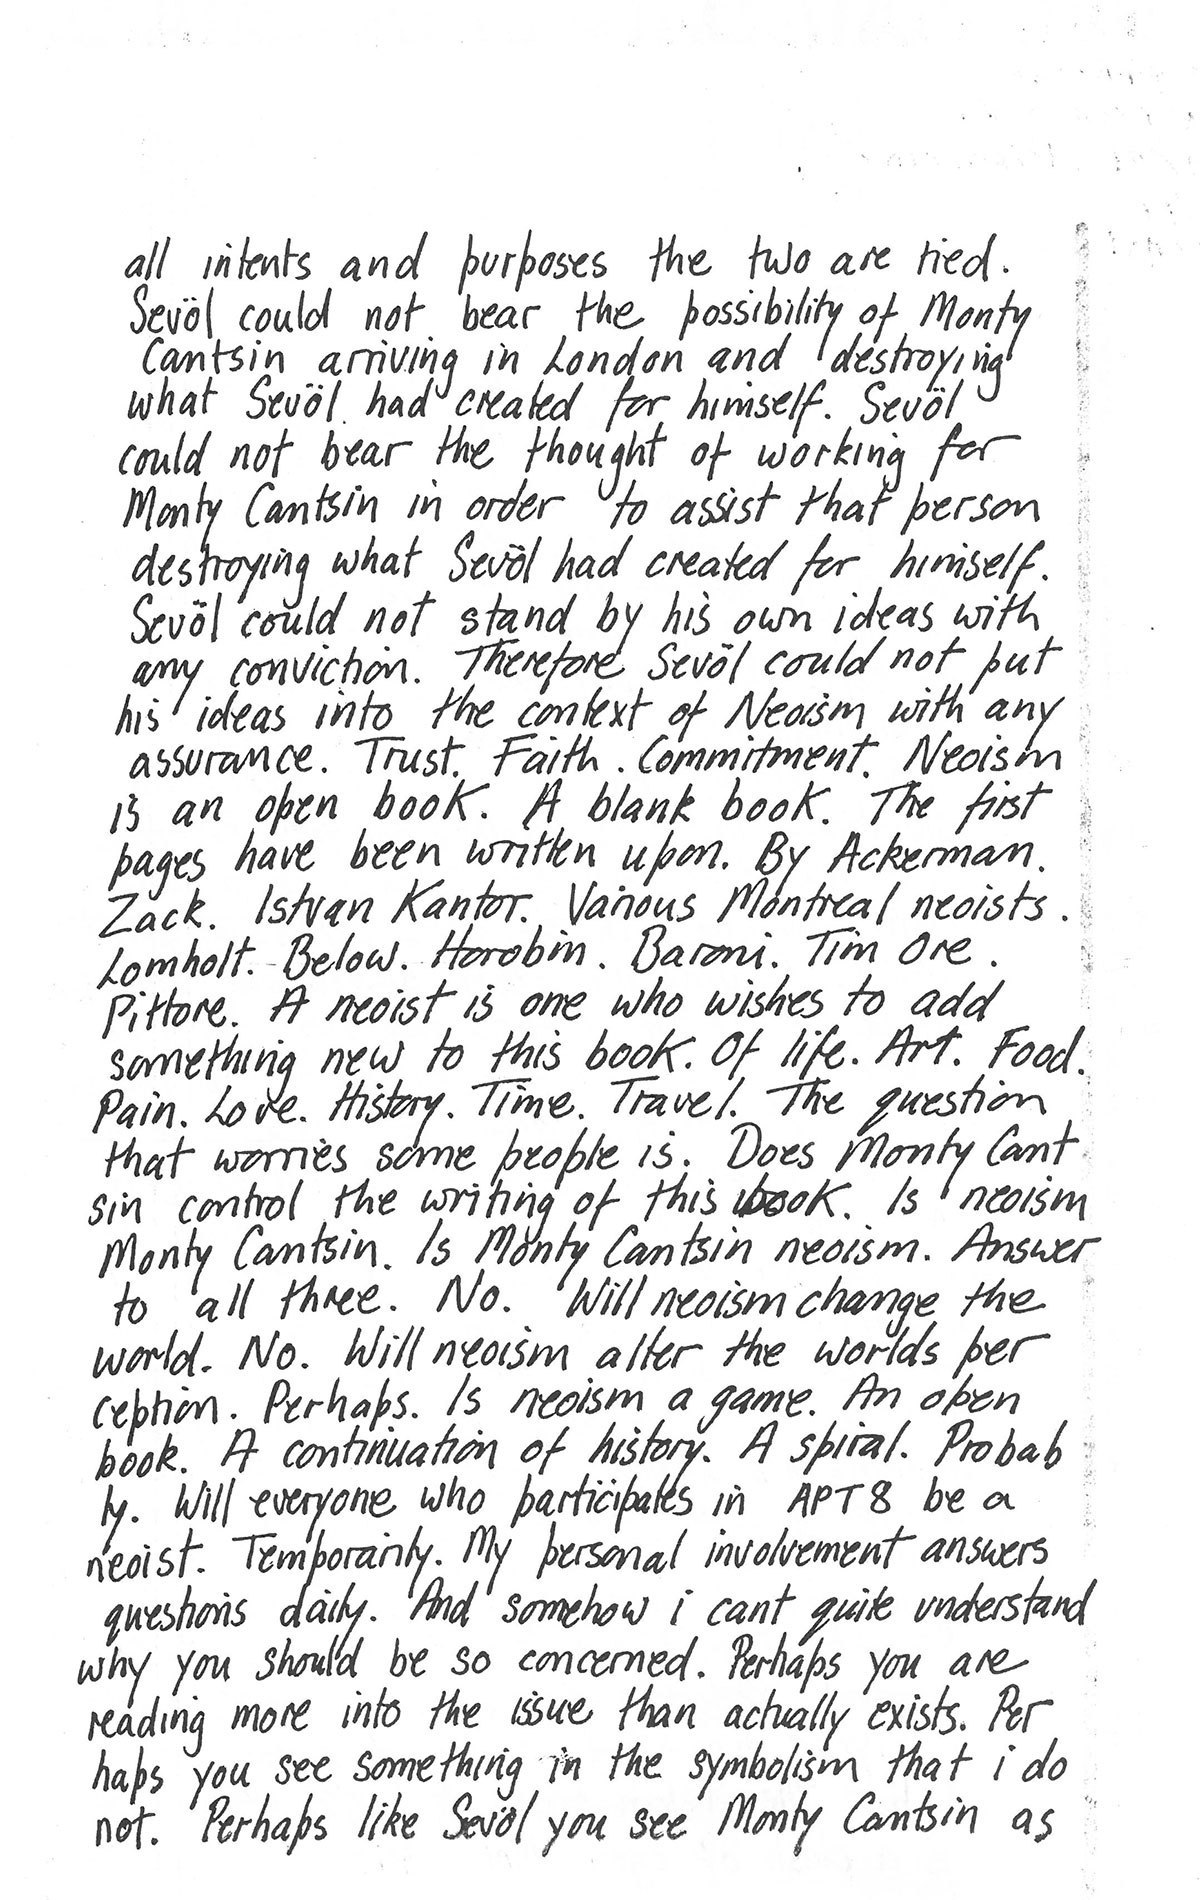 all intents and purposes the two are tied.
Sevöl could not bear the possibility of Monty
Cantsin arriving in London and destroying
what Sevöl had created for himself. Sevöl
could not bear the thought of working for
Monty Cantsin in order to assist that person
destroying what Sevöl had created for himself.
Sevöl could not stand by his own ideas with
any conviction. Therefore Sevöl could not put
his ideas into the context of Neoism with any
assurance. Trust. Faith. Commitment. Neoism
is an open book. A blank book. The first
pages have been written upon. By Ackerman.
Zack. Istvan Kantor. Various Montreal neoists.
Lomholt. Below. Horobin. Baroni. Tim Ore.
Pittore. A neoist is one who wishes to add
something new to this book. Of life. Art. Food.
Pain. Love. History. Time. Travel. The question
that worries some people is. Does Monty Cant
sin control the writing of this book. Is neoism
Monty Cantsin. Is Monty Cantsin neoism. Answer
to all three. No. Will neoism change the
world. No. Will neoism alter the worlds per
ception. Perhaps. Is neoism a game. An open
book. A continuation of history. A spiral. Probab
ly. Will everyone who participates in APT 8 be a
neoist. Temporarily. My personal involvement answers
questions daily. And somehow i cant quite understand
why you should be so concerned. Perhaps you are
reading more into the issue than actually exists. Per
haps you see something in the symbolism that i do
not. Perhaps like Sevöl you see Monty Cantsin as